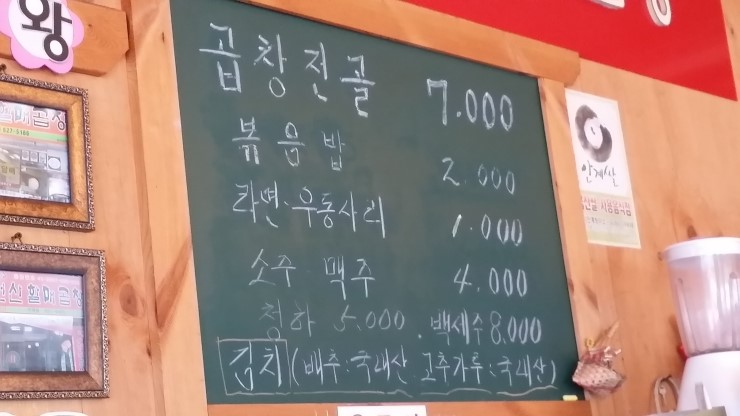 왕
곱창전골 7.000
볶음밥 2.000
라면·우동사리 1.000
소주 맥주 4.000
청하 5.000. 백세주 8.000
김치 (배추:국내산 고추가루:국내산)
할매곱창
627-5188
할매곱창
안계쌀